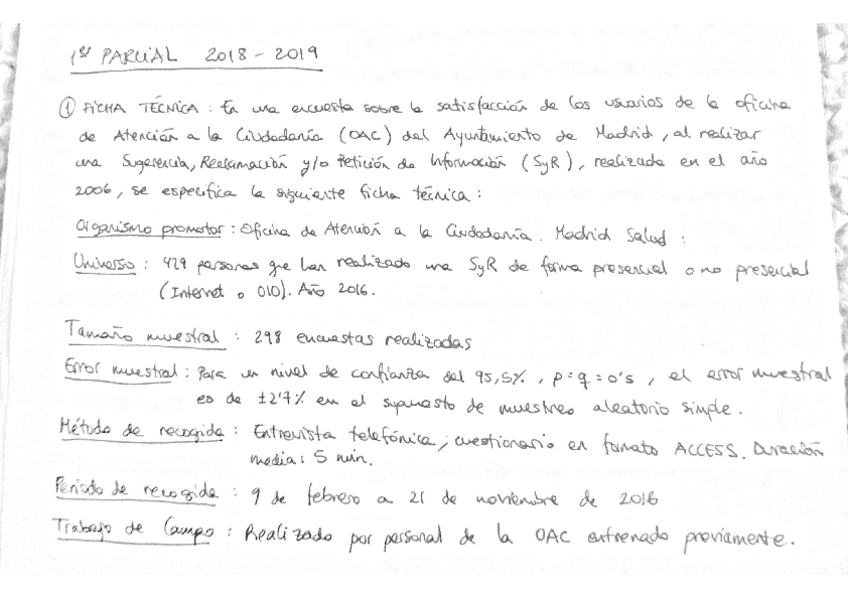 1er PARCIAL 2018 - 2019
① FICHA TÉCNICA : En una encuesta sobre la satisfacción de los usuarios de la oficina
de Atención a la Ciudadanía (OAC) del Ayuntamiento de Madrid, al realizar
una Sugerencia, Reclamación y/o Petición de Información (SyR), realizada en el año
2006, se especifica la siguiente ficha técnica :
Organismo promotor : Oficina de Atención a la Ciudadanía. Madrid Salud :
Universo : 429 personas que han realizado una SyR de forma presencial o no presencial
(Internet o 010). Año 2016.
Tamaño muestral : 298 encuestas realizadas
Error muestral : Para un nivel de confianza del 95,5%, p=q=0's, el error muestral
es de ±2'7% en el supuesto de muestreo aleatorio simple.
Método de recogida : Entrevista telefónica; cuestionario en formato ACCESS. Duración
media: 5 min.
Periodo de recogida : 9 de febrero a 21 de noviembre de 2016
Trabajo de Campo : Realizado por personal de la OAC entrenado previamente.